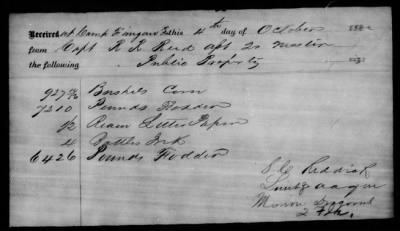 Received at Camp Finegan Fla this 4th day of October 186
from Capt R R Reid apt Qr Master
the following Public Property
927 Bushels Corn
7210 Pounds Fodder
1/2 Ream Letter Paper
4 Bottles Ink
6426 Pounds Fodder
S C Reddick
Lieut & a a qr m